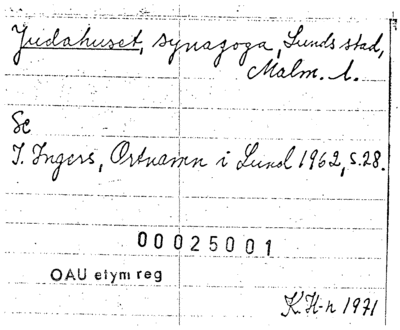 Judahuset, synagoga, Lunds stad,
Malm. l.
Se
I. Ingers, Ortnamn i Lund 1962, s. 28.
00025001
OAU etym reg
K. H-n 1971